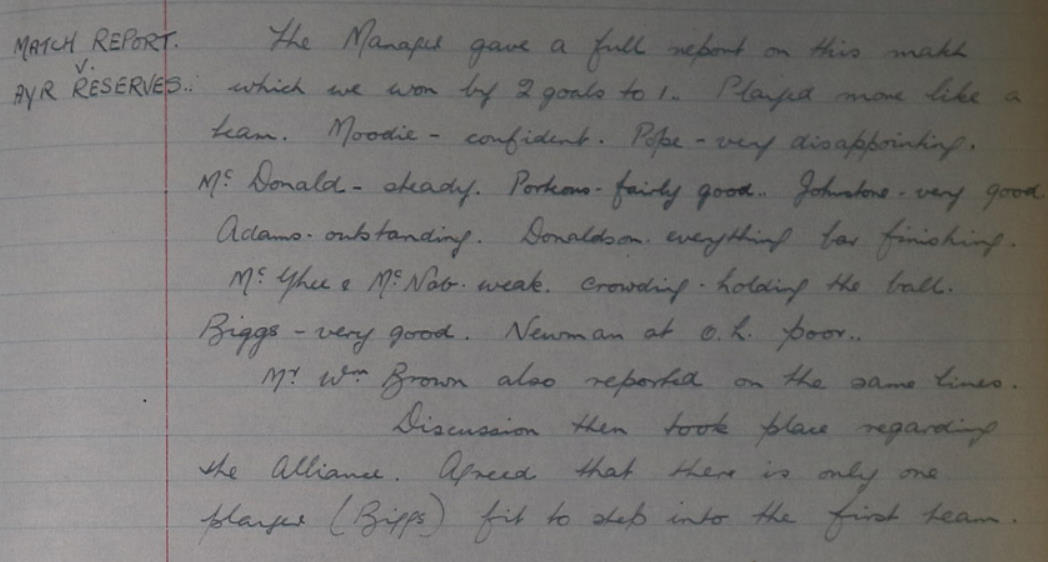 MATCH REPORT. The Manager gave a full report on this match
v.
AYR RESERVES.. which we won by 2 goals to 1.. Played more like a
team. Moodie - confident. Pope - very disappointing.
Mc Donald - steady. Porteous - fairly good.. Johnstone - very good.
Adams - outstanding. Donaldson - everything bar finishing.
Mc Ghee & Mc Nab - weak. Crowding - holding the ball.
Biggs - very good. Newman at o.L. poor..
Mr Wm Brown also reported on the same lines.
Discussion then took place regarding
the Alliance. Agreed that there is only one
player (Biggs) fit to step into the first team.